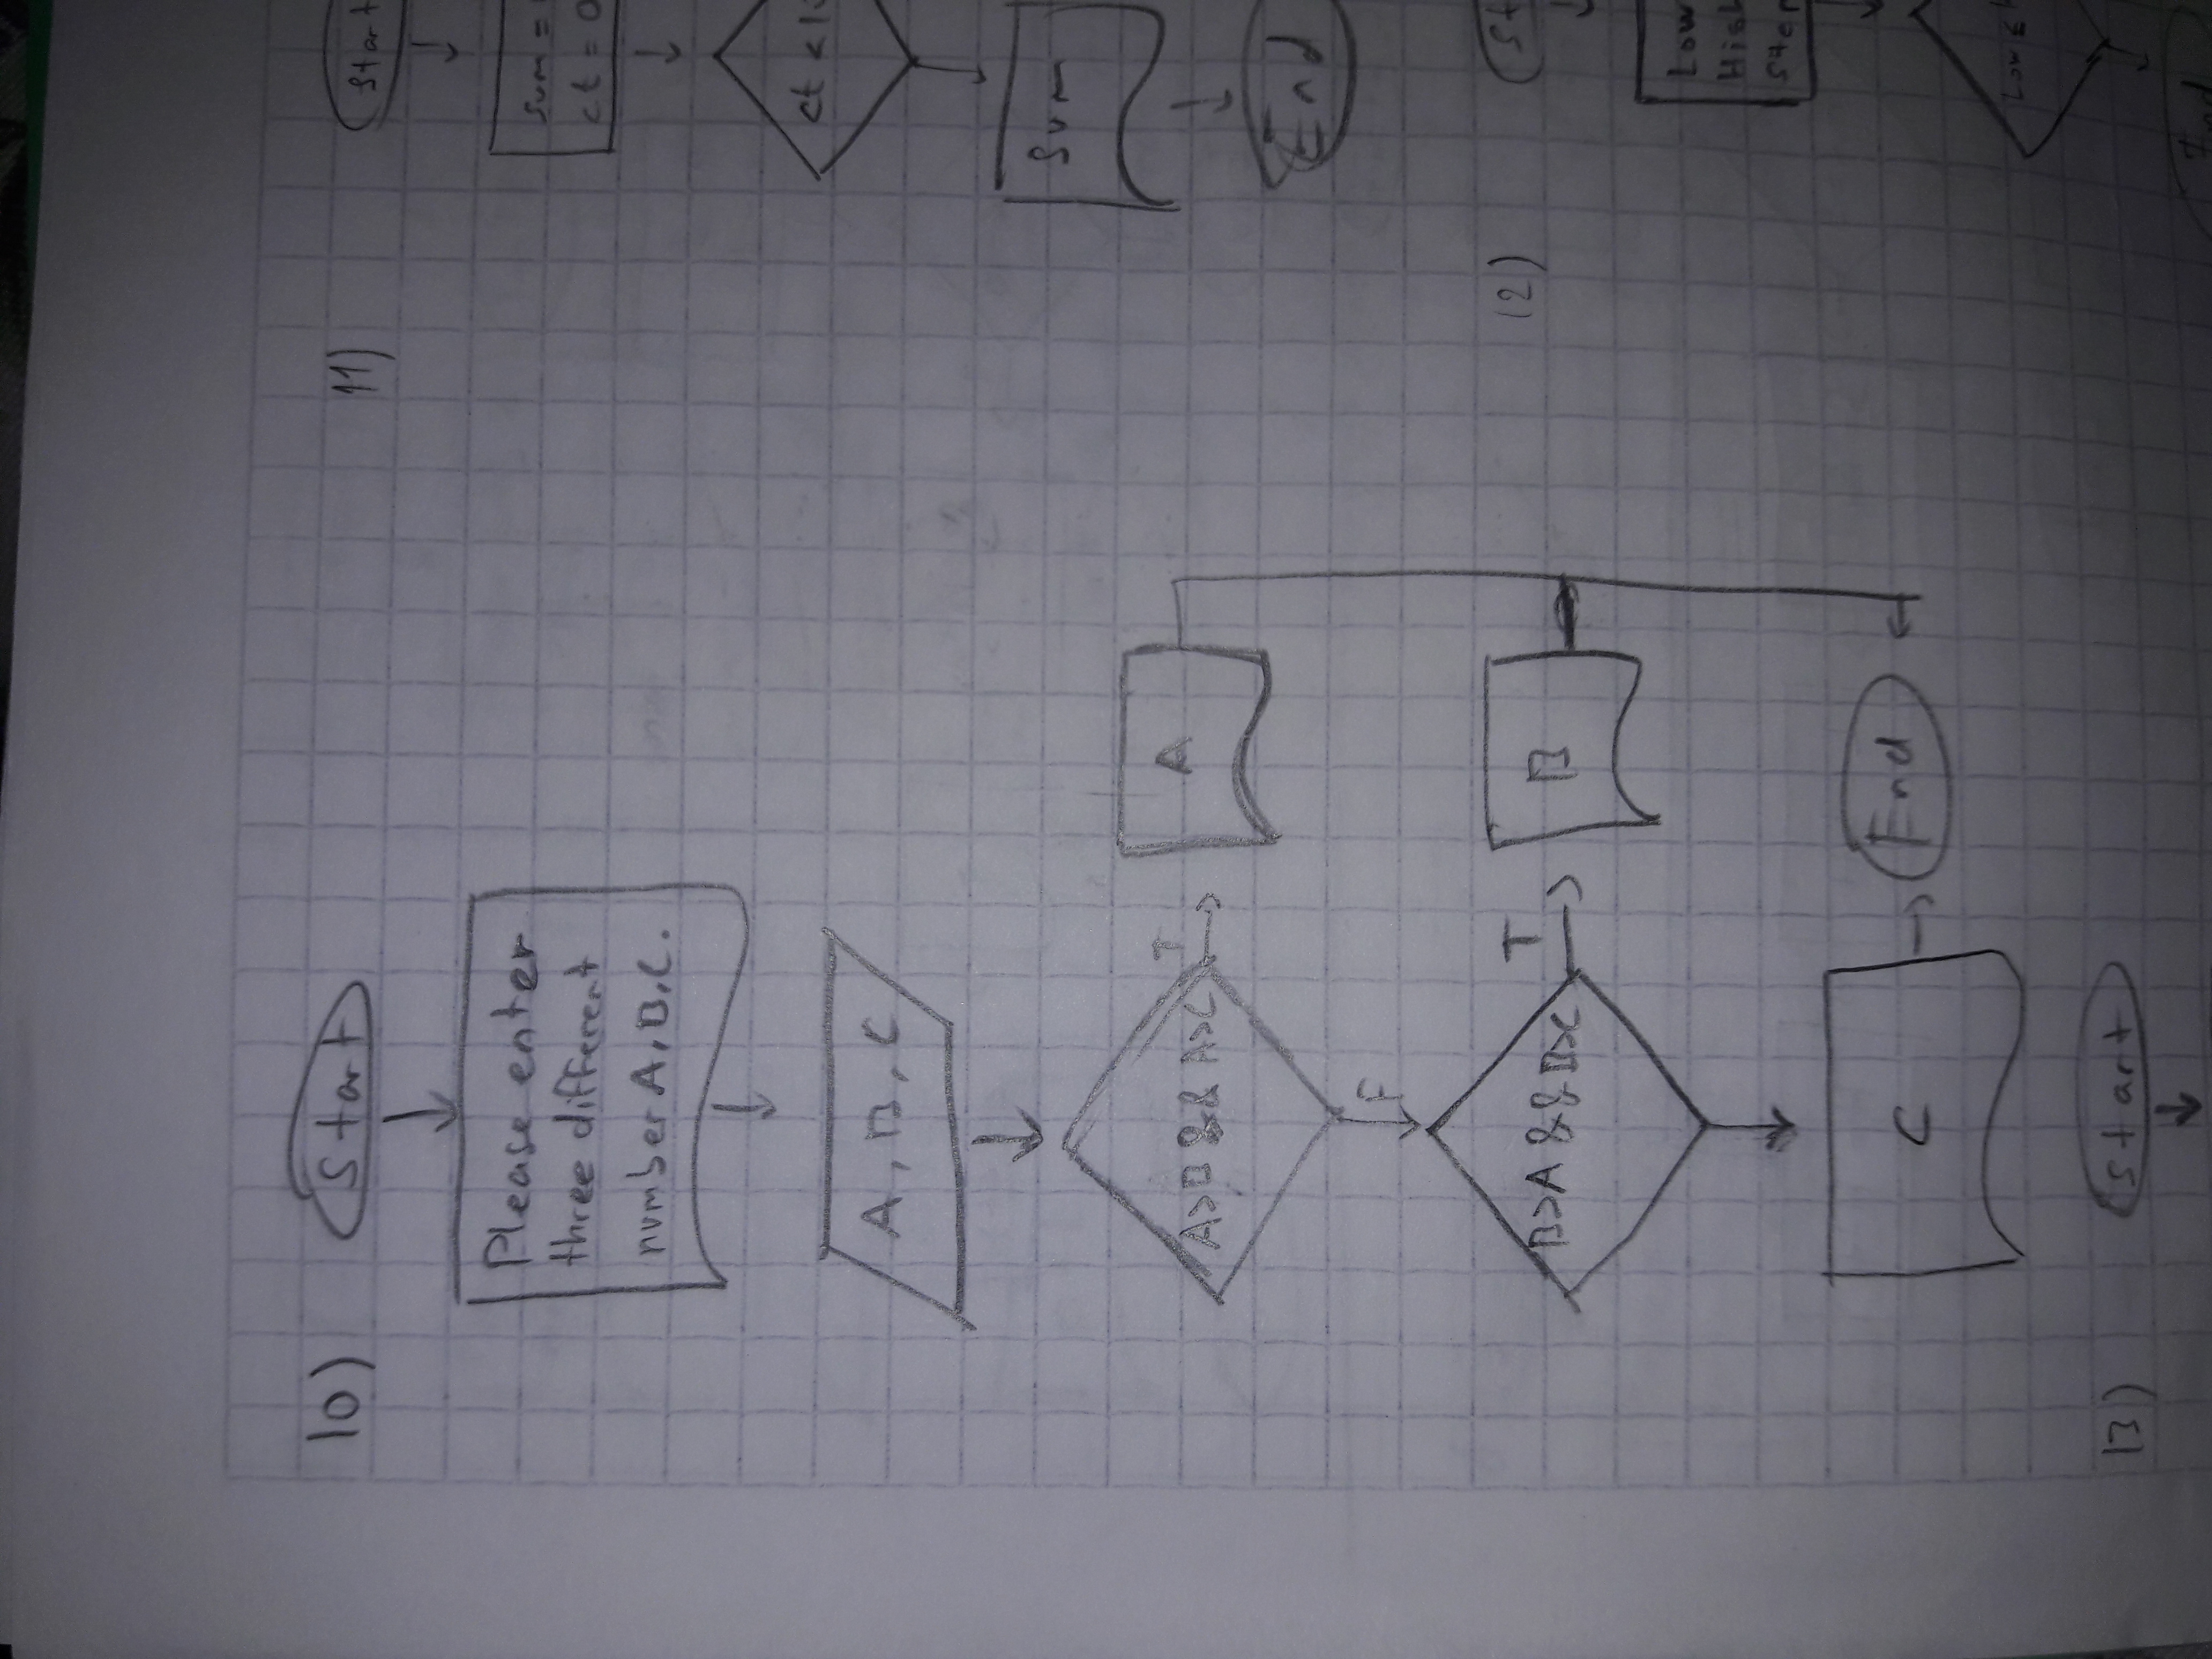 10)
Start
Please enter
three different
number A, B, C.
A, B, C
A>B && A>C
T
A
F
B>A && B>C
T
B
C
End
13)
Start
11)
Start
sum =
ct = 0
ct <
Sum
End
12)
St
Low
High
Low ≤
End